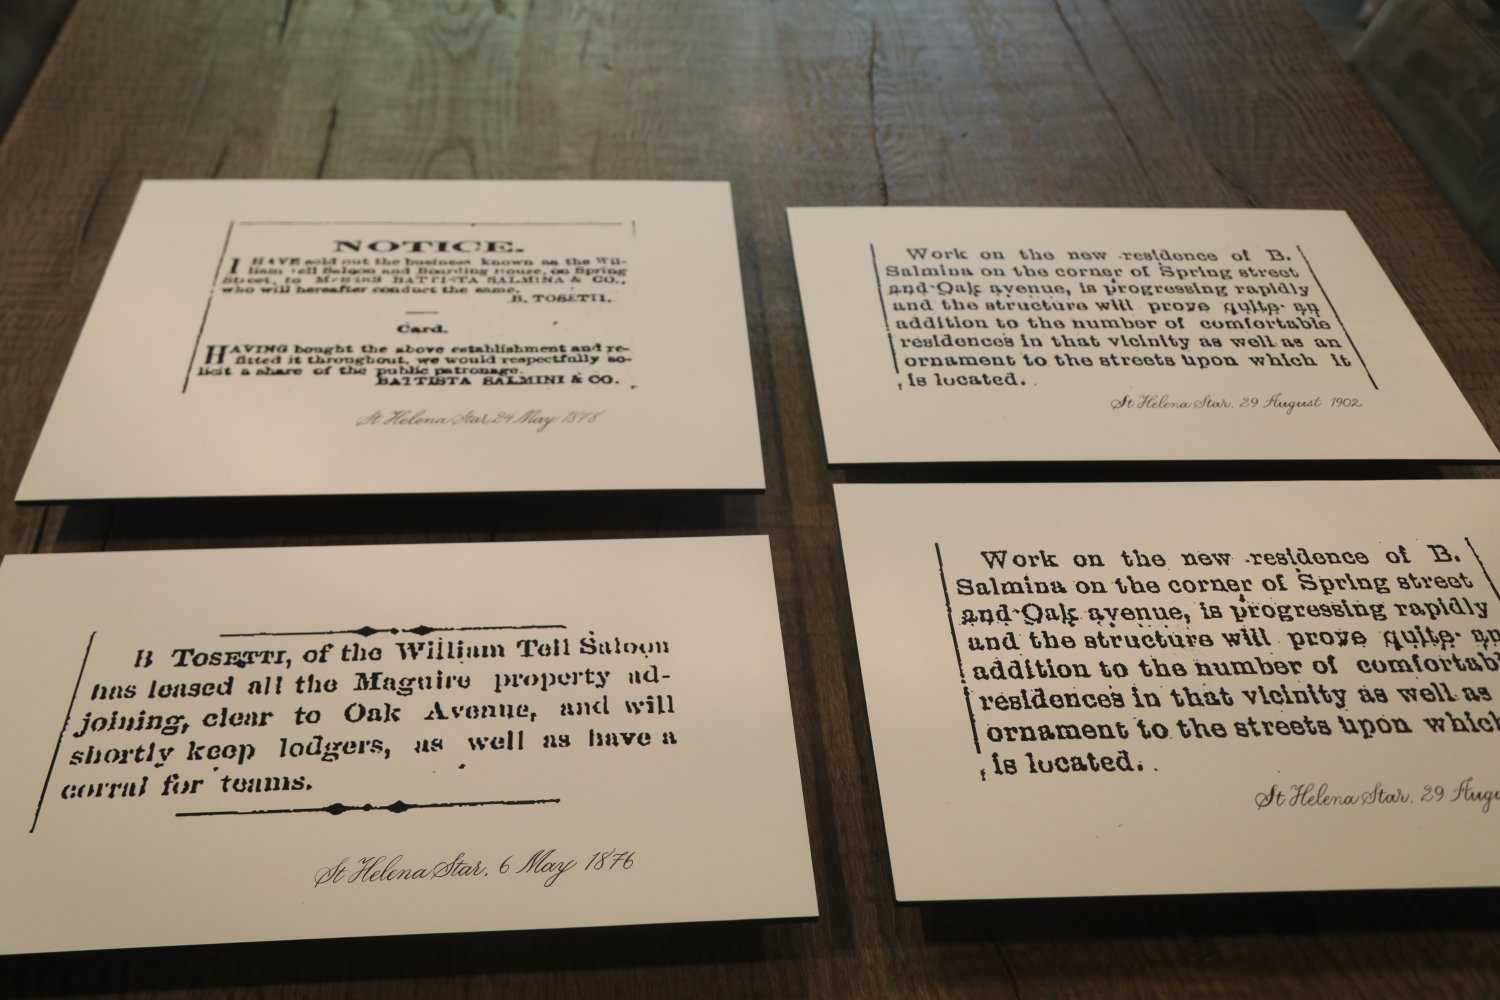 NOTICE.
I HAVE sold out the business known as the Wil-
liam Tell Saloon and Boarding House, on Spring
Street, to Messrs BATTISTA SALMINA & CO.,
who will hereafter conduct the same.
B. TOSETTI.
Card.
HAVING bought the above establishment and re-
fitted it throughout, we would respectfully so-
licit a share of the public patronage.
BATTISTA SALMINI & CO.
St Helena Star, 24 May 1878
Work on the new residence of B.
Salmina on the corner of Spring street
and Oak avenue, is progressing rapidly
and the structure will prove quite an
addition to the number of comfortable
residences in that vicinity as well as an
ornament to the streets upon which it
is located.
St Helena Star, 29 August 1902
B TOSETTI, of the William Tell Saloon
has leased all the Maguire property ad-
joining, clear to Oak Avenue, and will
shortly keep lodgers, as well as have a
corral for teams.
St Helena Star, 6 May 1876
Work on the new residence of B.
Salmina on the corner of Spring street
and Oak avenue, is progressing rapidly
and the structure will prove quite an
addition to the number of comfortabl
residences in that vicinity as well as
ornament to the streets upon which
is located.
St Helena Star, 29 Augu